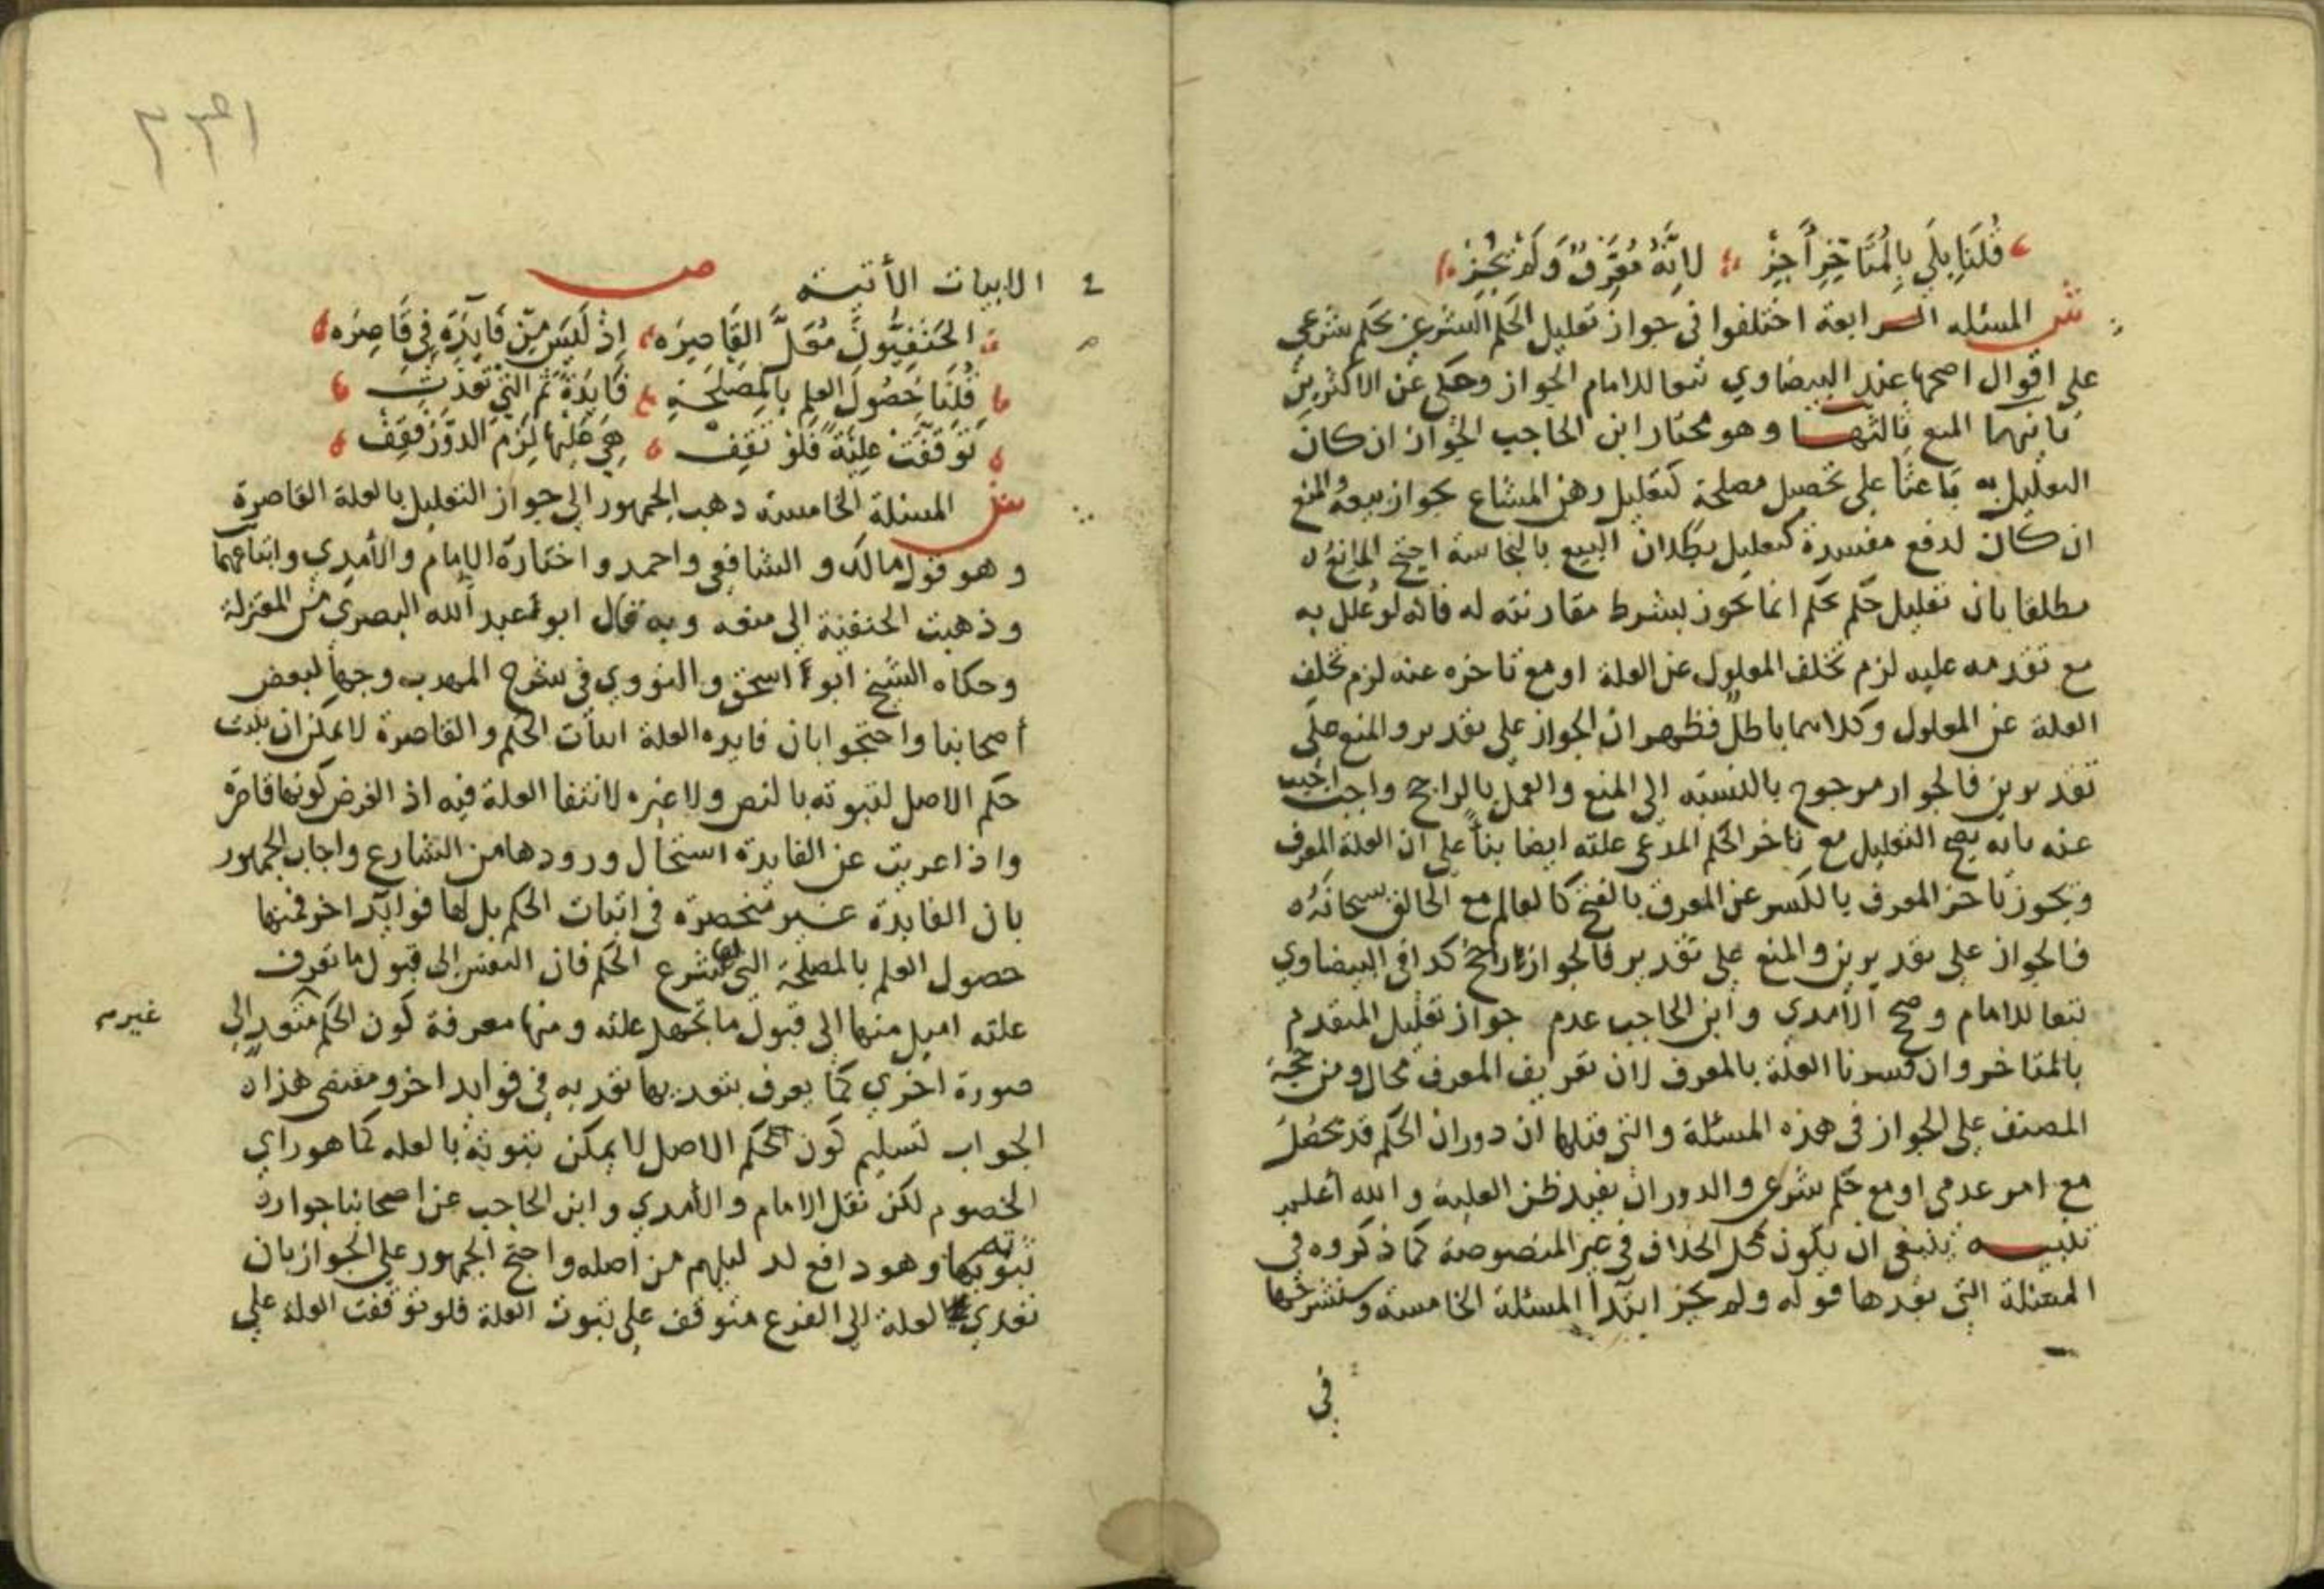 قُلنَا بَلَى بِالمُتَأخِّرِ أَجِزْ لِأَنَّهُ مُعَرِّفٌ وَلَمْ يَجُزْ
ش المسئله الرابعة اختلفوا في جواز تعليل الحكم الشرعي بحكم شرعي
على اقوال اصحها عند البيضاوي تبعا للامام الجواز وحكى عن الاكثرين
ثانيهما المنع ثالثها وهو مختار ابن الحاجب الجواز ان كان
التعليل به باعثا على تحصيل مصلحة كتعليل رهن المشاع بجواز بيعه والمنع
ان كان لدفع مفسدة كتعليل بطلان البيع بالنجاسة احتج المانع
مطلقا بان تعليل حكم بحكم انما يجوز بشرط مقارنته له فانه لو علل به
مع تقدمه عليه لزم تخلف المعلول عن العلة او مع تاخره عنه لزم تخلف
العلة عن المعلول وكلاهما باطل فظهر ان الجواز على تقدير والمنع على
تقديرين فالجواز مرجوح بالنسبة الى المنع والعمل بالراجح واجب اجيب
عنه بانه يصح التعليل مع تاخر الحكم المدعى علته ايضا بناً على ان العلة المعرف
ويجوز تاخر المعرف بالكسر عن المعرف بالفتح كالعالم مع الخالق سبحانه
فالجواز على تقديرين والمنع على تقدير فالجواز راجح كذا في البيضاوي
تبعا للامام وصحح الآمدي وابن الحاجب عدم جواز تعليل المتقدم
بالمتاخر وان فسرنا العلة بالمعرف لان تعريف المعرف محال ومن حجة
المصنف على الجواز في هذه المسئلة والتي قبلها ان دوران الحكم قد يحصل
مع امر عدمي او مع حكم شرعي والدوران يفيد ظن العلية والله أعلم
تنبيـه ينبغي ان يكون محل الخلاف في غير المنصوصة كما ذكروه في
المسئلة التي بعدها قوله ولم يجز ابتدأ المسئلة الخامسة وسنشرحها
في
الابيات الأتيـة ص
الحَنَفِيُّونَ مُعَلَّ القَاصِرَه إِذْ لَيسَ مِن فَايِدَةٍ فِي قَاصِرَه
قُلنَا حُصُولَ العِلمِ بِالمصلَحَةِ فَايِدَةٌ ثم التي تعدت
تَوَقَّفَتْ عِلِّيَّةً فَلَوْ تَقِفْ هِيَ عَلَيهَا لَزِمَ الدَّوْرُ فَقِفْ
ش المسئلة الخامسة ذهب الجمهور الى جواز التعليل بالعلة القاصرة
وهو قول مالك والشافعي واحمد واختاره الإمام والأمدي واتباعهما
وذهبت الحنفية الى منعه وبه قال ابو عبد الله البصري من المعتزلة
وحكاه الشيخ ابو اسحق والنووي في شرح المهذب وجها لبعض
أصحابنا واحتجوا بان فايدة العلة اثبات الحكم والقاصرة لا يمكن ان يثبت
حكم الاصل لثبوته بالنص ولا غيره لانتفا العلة فيه اذ الفرض كونها قاصرة
واذا عريت عن الفايدة استحال ورودها من الشارع واجاب الجمهور
بان الفايدة غـير منحصرة في اثبات الحكم بل لها فوايد اخر فمنها
حصول العلم بالمصلحة التي لها شرع الحكم فان النفس الى قبول ما تعرف
علته اميل منها الى قبول ما تجهل علته ومنها معرفة كون الحكم متعد الى
غير
صورة اخري كما يعرف بتعديها تعديه في فوايد اخر ومقتضى هذا
الجواب تسليم كون الحكم الاصل لا يمكن ثبوته بالعله كما هو راي
الخصوم لكن نقل الامام والأمدي وابن الحاجب عن اصحابنا جواز
ثبوته بها وهو دافع لدليلهم من أصله واحتج الجمهور على الجواز بان
تعدي العلة الى الفرع متوقف على ثبوت العلة فلو توقفت العلة على